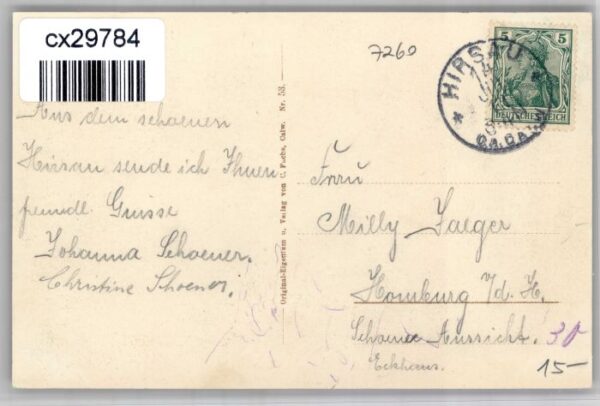 cx29784
7260
HIRSAU
5 5
DEUTSCHES REICH
Aus dem schoenen
Hirsau sende ich Ihnen
freundl. Gruisse
Johanna Schoener.
Christine Schoener.
Original-Eigentum u. Verlag von C. Fuchs, Calw. Nr. 53.
Frau
Milly Jaeger
Homburg v/d. H.
Schoene Aussicht. 30
Eckhaus.
15-